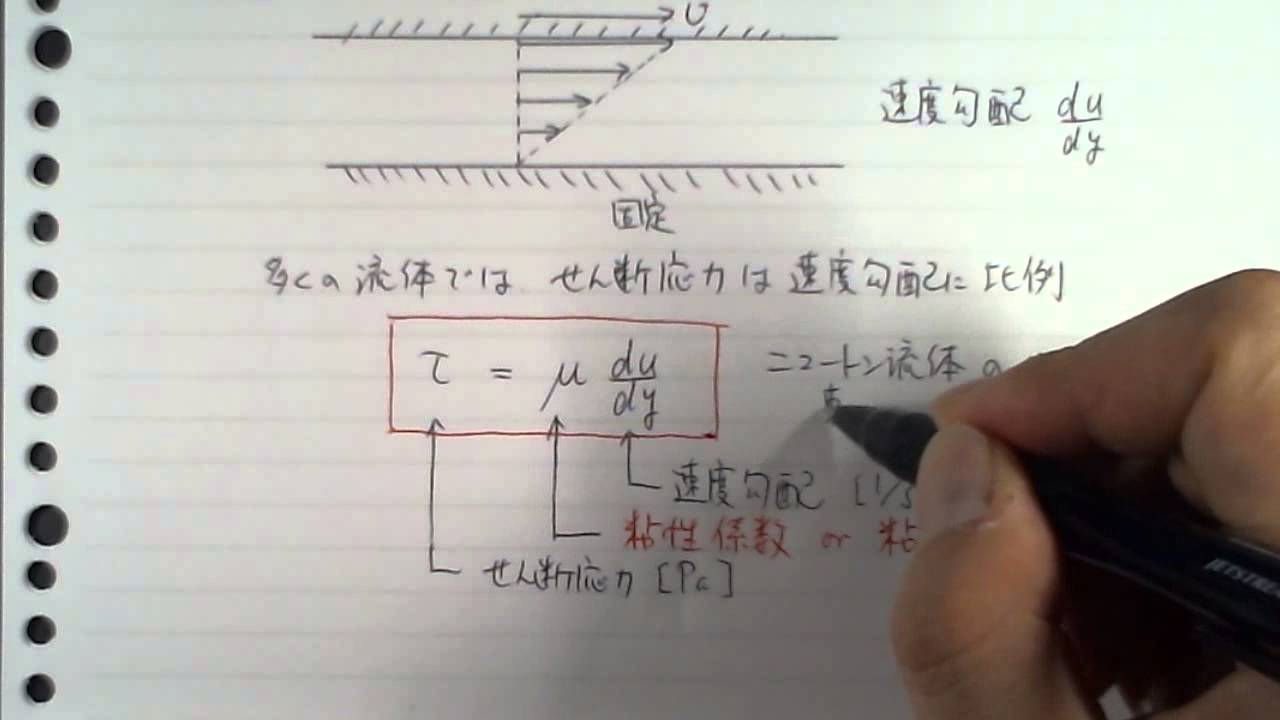 U
速度勾配 du/dy
固定
多くの流体では せん断応力は速度勾配に比例
τ = μ du/dy
ニュートン流体の
速度勾配 [1/s
粘性係数 or 粘
せん断応力 [Pa]
JETSTRE